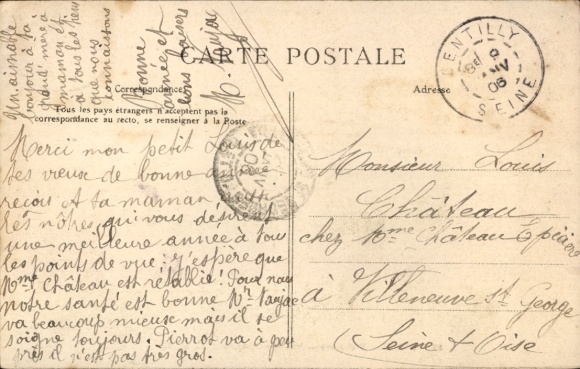 Un aimable
bonjour à ta
grand mère à
maman et
à tous les
que nous
connaissons
Bonne
année et
bons baisers
CARTE POSTALE
Correspondance
Adresse
Tous les pays étrangers n'acceptent pas la
correspondance au recto, se renseigner à la Poste
GENTILLY
SEINE
Merci mon petit Louis de
tes vœux de bonne année
reçois et ta maman
les nôtres, qui vous désirent
une meilleure année à tous
les points de vue; j'espère que
Mme Château est rétablie! Pour nous
notre santé est bonne Mr
va beaucoup mieuse mais il se
soigne toujours. Pierrot va à peu
près il n'est pas très gros.
Monsieur Louis
Château
chez Mme Château Epicière
à Villeneuve St George
(Seine & Oise